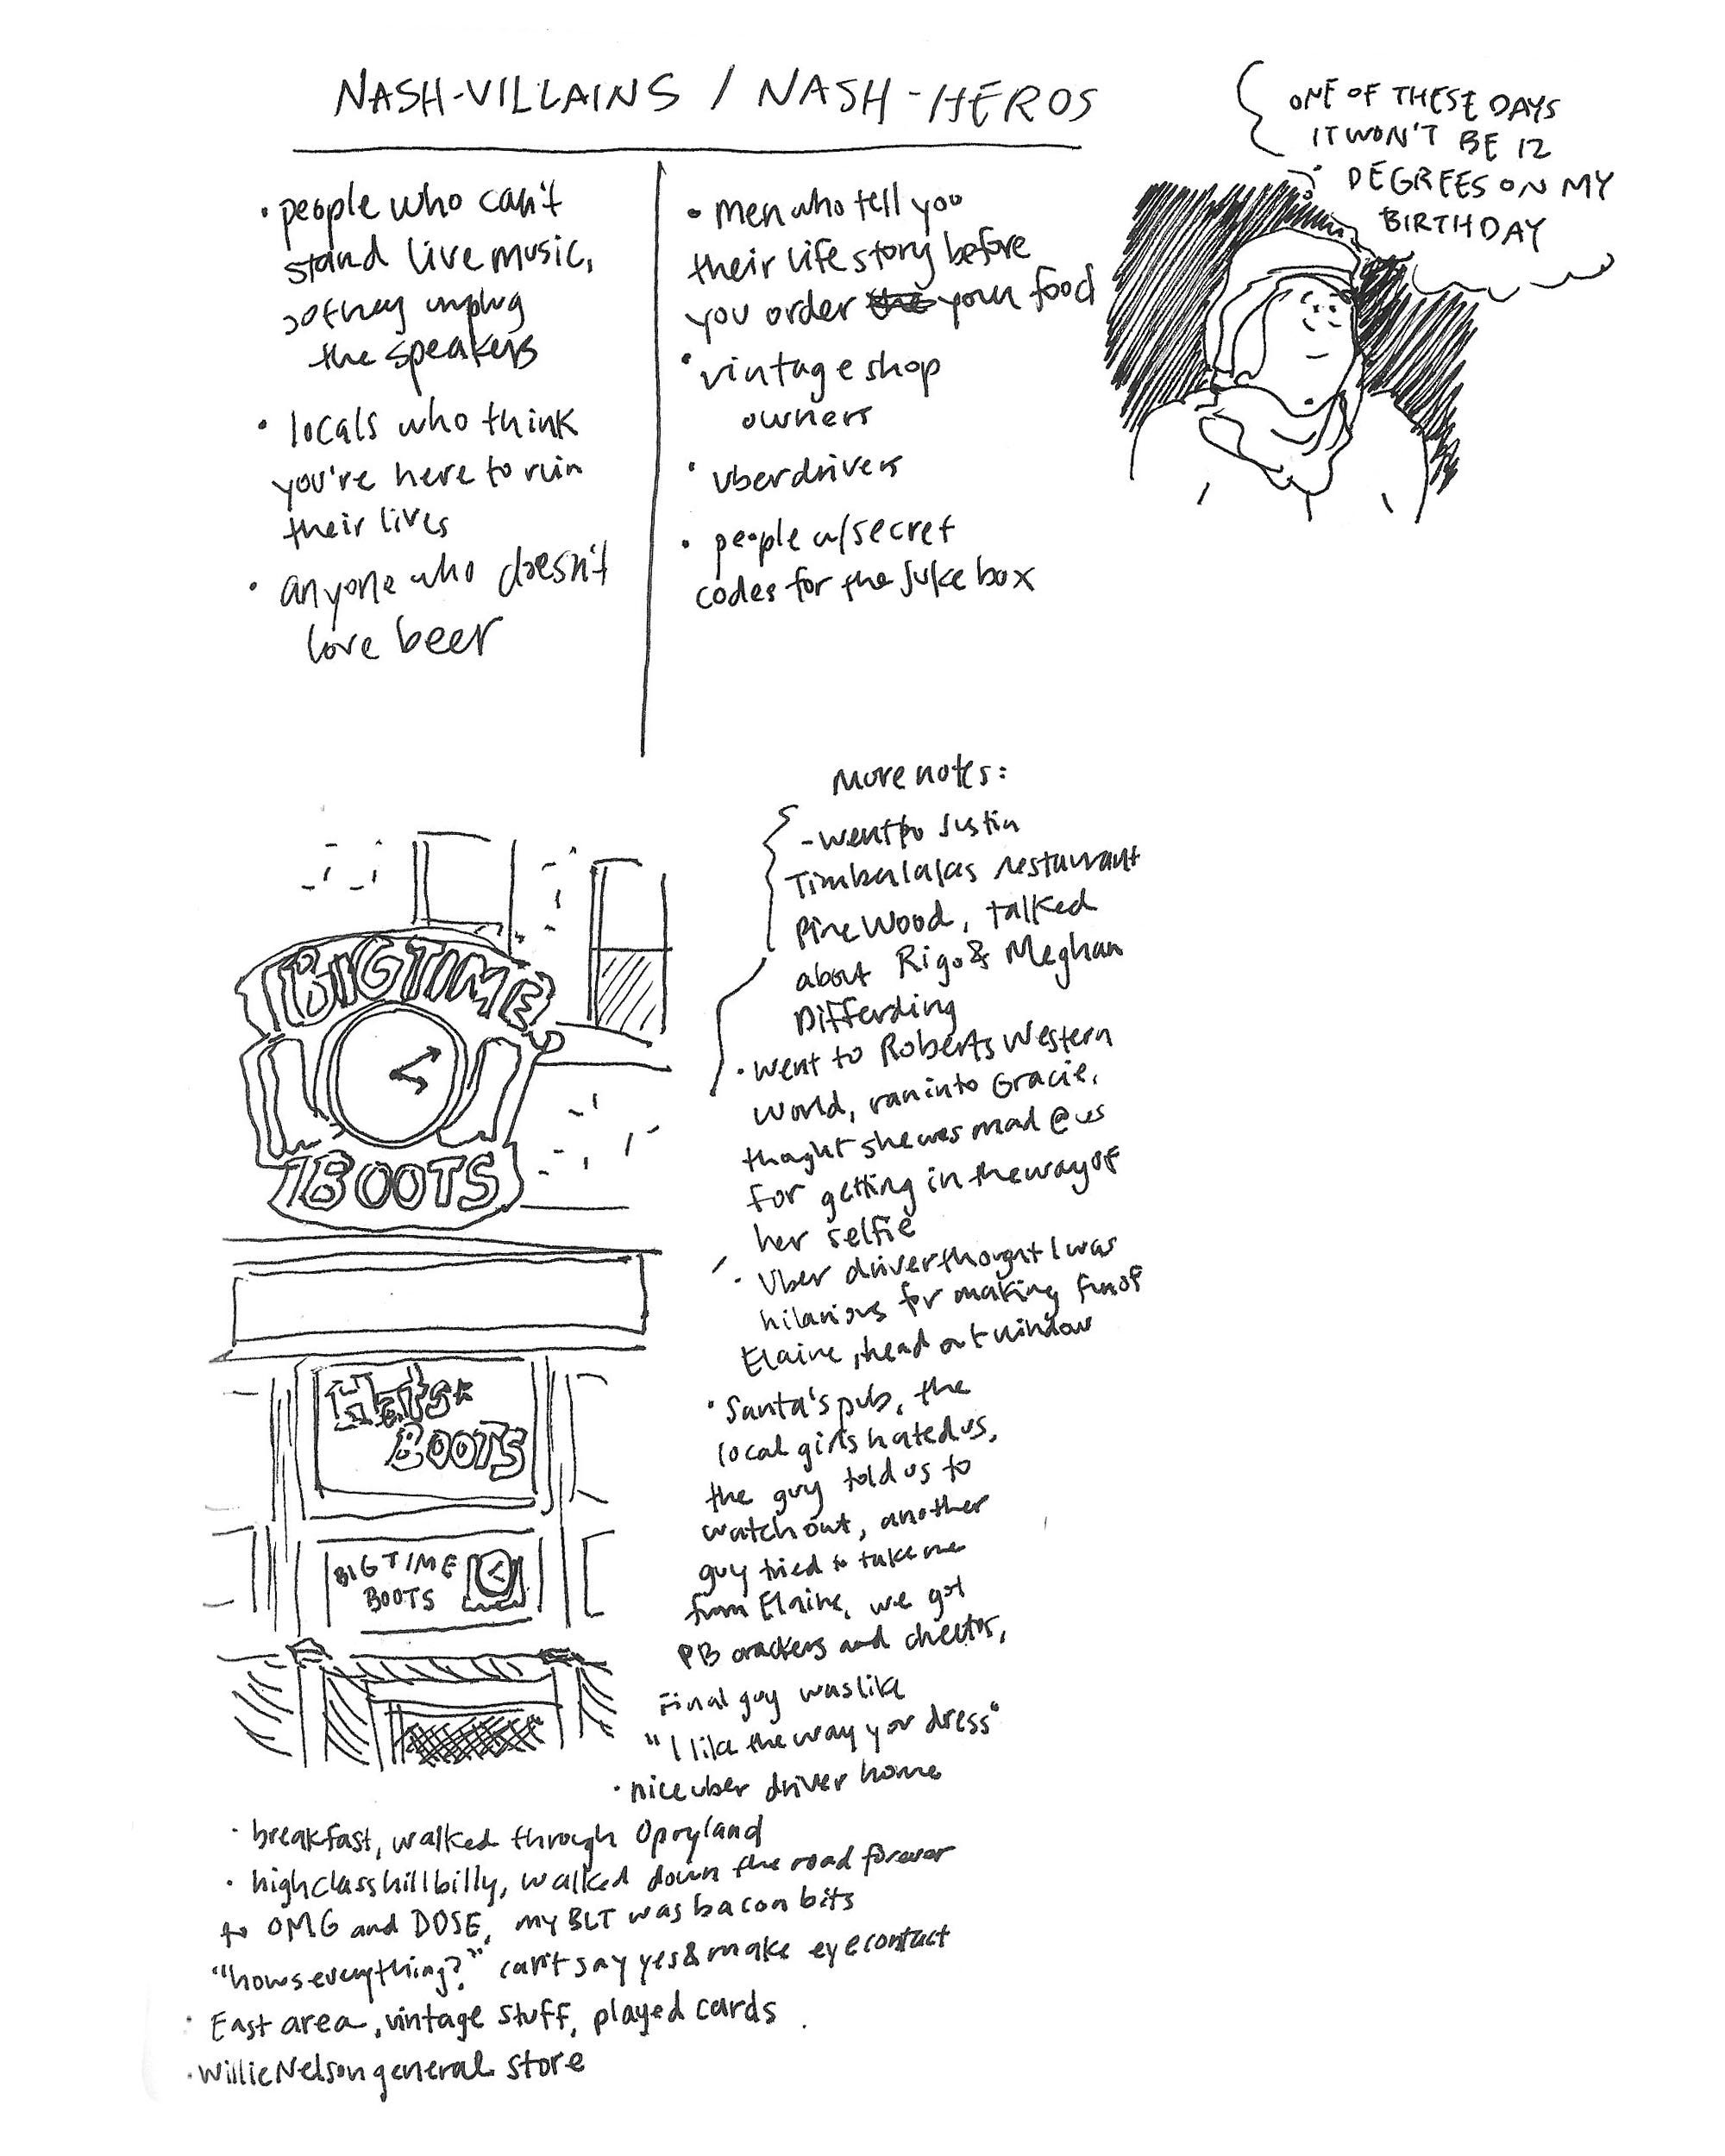 NASH-VILLAINS / NASH-HEROS
• people who can't
stand live music,
so they unplug
the speakers
• locals who think
you're here to ruin
their lives
• anyone who doesn't
love beer
• men who tell you
their life story before
you order your food
• vintage shop
owners
• uber drivers
• people w/secret
codes for the Juke box
ONE OF THESE DAYS
IT WON'T BE 12
DEGREES ON MY
BIRTHDAY
BIGTIME
BOOTS
HATS★
BOOTS
BIG TIME
BOOTS
More notes:
- went to Justin
Timberlakes restaurant
PineWood, talked
about Rigo & Meghan
Differding
• Went to Roberts Western
World, ran into Gracie,
thought she was mad @ us
for getting in the way of
her selfie
• Uber driver thought I was
hilarious for making fun of
Elaine, head out window
• Santa's pub, the
local girls hated us,
the guy told us to
watch out, another
guy tried to take me
from Elaine, we got
PB crackers and cheetos,
Final guy was like
"I like the way you dress"
• nice uber driver home
• breakfast, walked through Opryland
• high class hillbilly, walked down the road forever
to OMG and DOSE, my BLT was bacon bits
"hows everything?" can't say yes & make eye contact
• East area, vintage stuff, played cards
• Willie Nelson general store